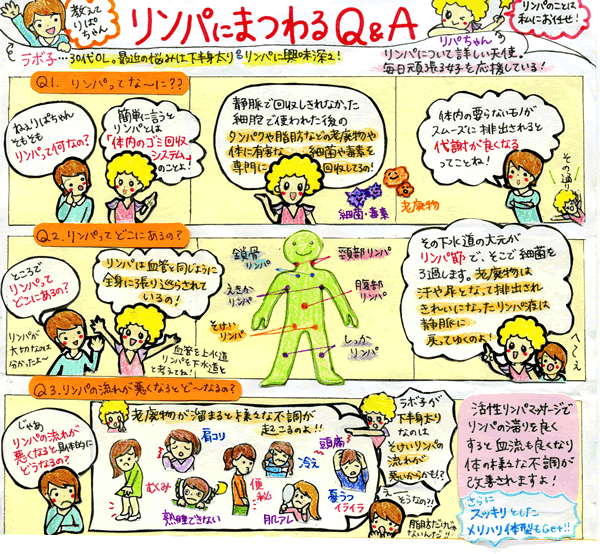 教えて
りぱ
ちゃん
リンパにまつわるQ&A
リンパのことは
私におまかせ!
ラボ子…30代OL。最近の悩みは下半身太り。リンパに興味深々!
リパちゃん
リンパについて詳しい天使。
毎日頑張る女子を応援している!
Q1. リンパってな〜に??
ねぇりぱちゃん
そもそも
リンパって何なの?
簡単に言うと
リンパとは
「体内のゴミ回収
システム」
のことよ!
静脈で回収しきれなかった
細胞で使われた後の
タンパクや脂肪などの老廃物や
体に有害な
細菌や毒素を
専門に
回収してるの!
細菌・毒素
老廃物
体内の要らないモノが
スムーズに排出されると
代謝が良くなる
ってことね!
その通り
Q2. リンパってどこにあるの?
ところで
リンパって
どこにあるの?
リンパが
大切なのは
分かったよ〜
リンパは血管と同じように
全身に張り巡らされて
いるの!
血管を上水道
リンパを下水道と
考えてね!
鎖骨
リンパ
頸部リンパ
えきか
リンパ
腹部
リンパ
そけい
リンパ
しっか
リンパ
その下水道の大元が
リンパ節で、そこで細菌を
ろ過します。老廃物は
汗や尿となって排出され
きれいになったリンパ液は
静脈に
戻ってゆくのよ!
へぇ〜
Q3. リンパの流れが悪くなるとど〜なるの?
じゃあ
リンパの流れが
悪くなると具体的に
どうなるの?
老廃物が溜まると様々な不調が
起こるのよ!!
肩コリ
頭痛
むくみ
冷え
便秘
熟睡できない
肌アレ
憂うつ
イライラ
ラボ子が
下半身太り
なのは
そけいリンパの
流れが
悪いからかも?
えーそうなの?!
脂肪だけじゃ
ないんだ!!
活性リンパマッサージで
リンパの滞りを良く
すると血流も良くなり
体の様々な不調が
改善されますよ!
さらに
スッキリとした
メリハリ体型もGet!!